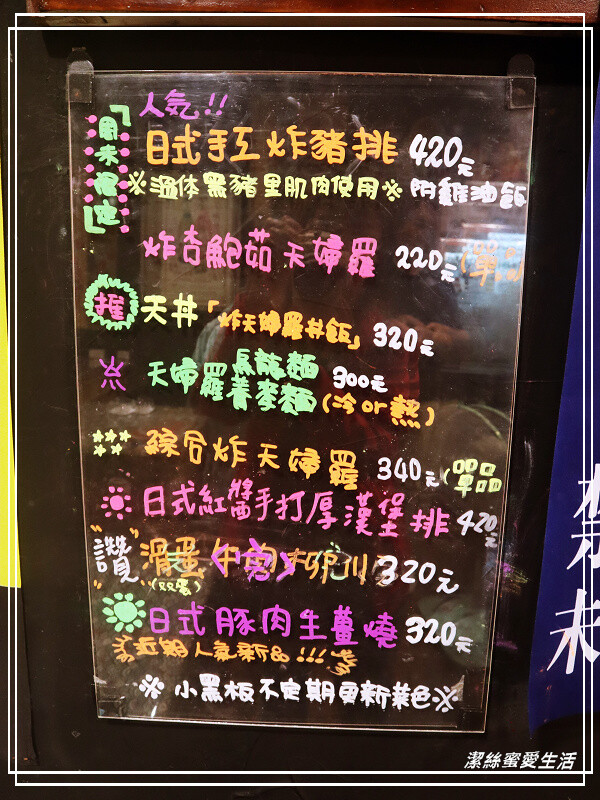 人気!!
風味限定
日式手工炸豬排 420元
※溫体黑豬里肌肉使用※ 附雞油飯
炸杏鮑茹天婦羅 220元(單品
推 天丼「炸天婦羅丼飯」320元
天婦羅烏龍麵 蕎麥麵 300元 (冷or熱)
綜合炸天婦羅 340元(單品
日式紅醬手打厚漢堡排 420元
"讚" 滑蛋牛肉 柳川 320元
(双蛋)
日式豚肉生薑燒 320元
近期人氣新品!!!
※小黑板不定期更新菜色※
潔絲蜜愛生活